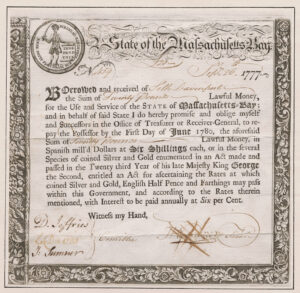 State of the Massachusetts-Bay
Sept. 1777.
Borrowed and received of
the Sum of Lawful Money,
for the Use and Service of the STATE of Massachusetts-Bay;
and in behalf of said State I do hereby promise and oblige myself
and Successors in the Office of Treasurer or Receiver-General, to re-
pay the Possessor by the First Day of June 1780, the aforesaid
Sum of Lawful Money, in
Spanish mill'd Dollars at Six Shillings each, or in the several
Species of coined Silver and Gold enumerated in an Act made and
passed in the Twenty third Year of his late Majesty King George
the Second, entitled an Act for ascertaining the Rates at which
coined Silver and Gold, English Half Pence and Farthings may pass
within this Government, and according to the Rates therein
mentioned, with Interest to be paid annually at Six per Cent.
Witness my Hand,
D. Jeffries
Committee
J. Sumner